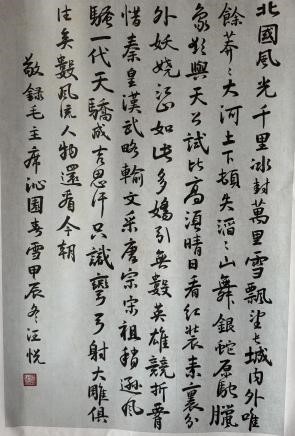 北國風光千里冰封萬里雪飄望長城內外唯
餘莽〻大河上下頓失滔〻山舞銀蛇原馳臘
象欲與天公試比高須晴日看紅裝素裹分
外妖嬈江山如此多嬌引無數英雄競折腰
惜秦皇漢武略輸文采唐宗宋祖稍遜風
騷一代天驕成吉思汗只識彎弓射大雕俱
往矣數風流人物還看今朝
敬錄毛主席沁園春雪甲辰冬汪悅